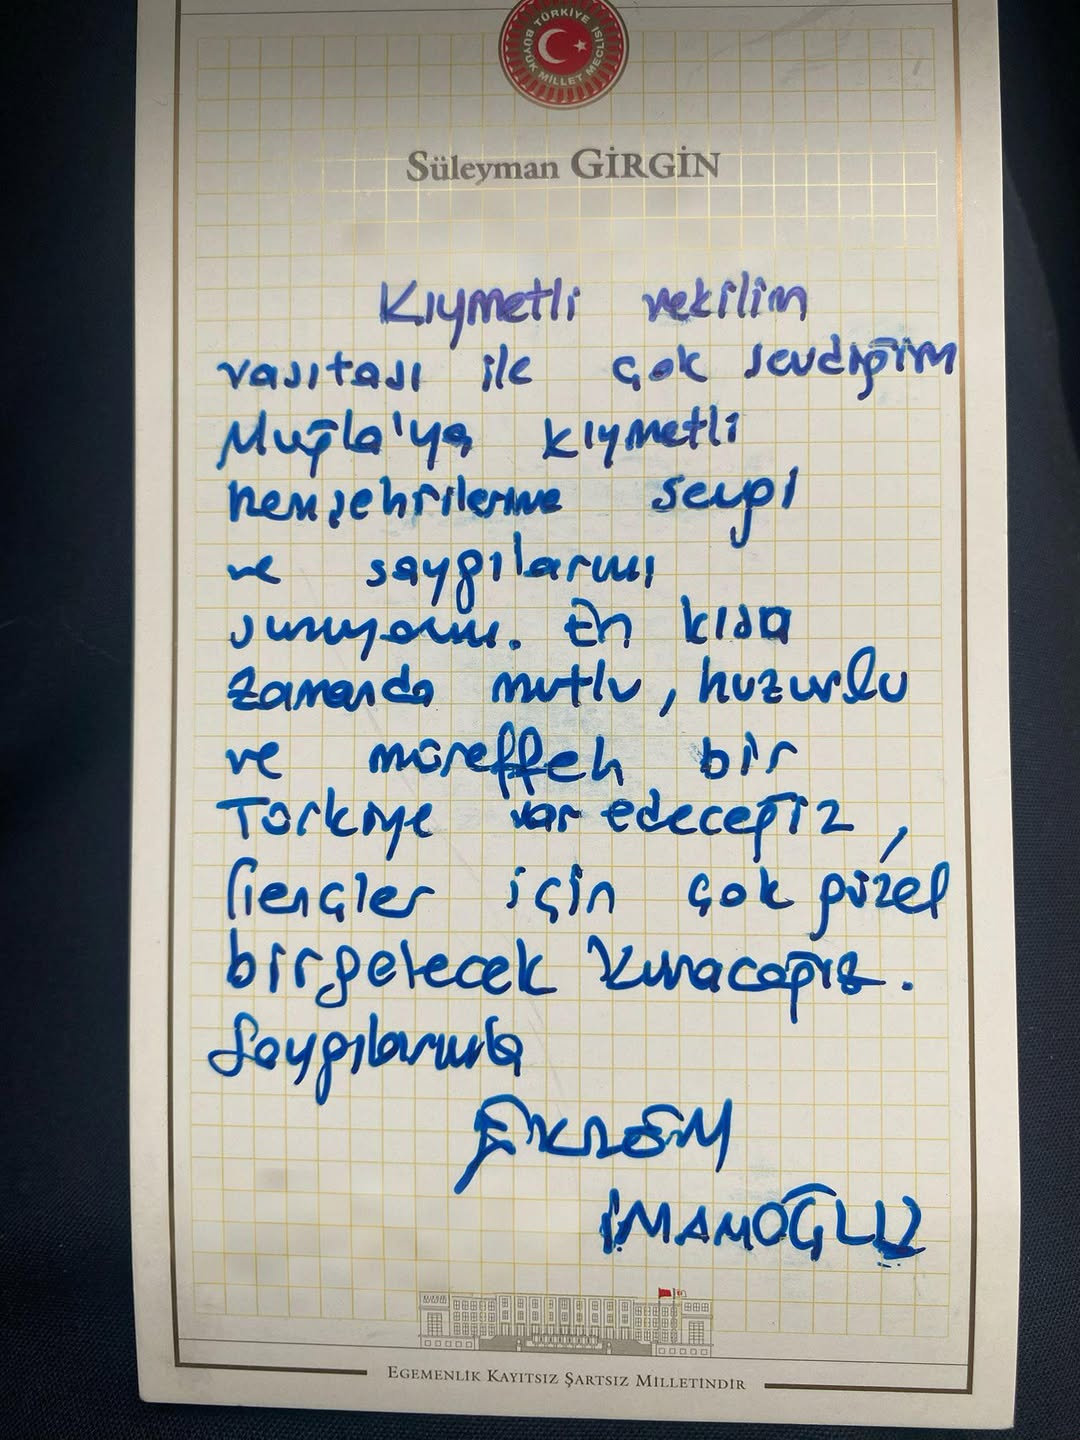 TÜRKİYE BÜYÜK MİLLET MECLİSİ
Süleyman GİRGİN
Kıymetli vekilim
vasıtası ile çok sevdiğim
Muğla'ya kıymetli
hemşehrilerime sevgi
ve saygılarımı
sunuyorum. En kısa
zamanda mutlu, huzurlu
ve müreffeh bir
Türkiye var edeceğiz,
Gençler için çok güzel
bir gelecek kuracağız.
Saygılarımla
EKREM
İMAMOĞLU
EGEMENLİK KAYITSIZ ŞARTSIZ MİLLETİNDİR